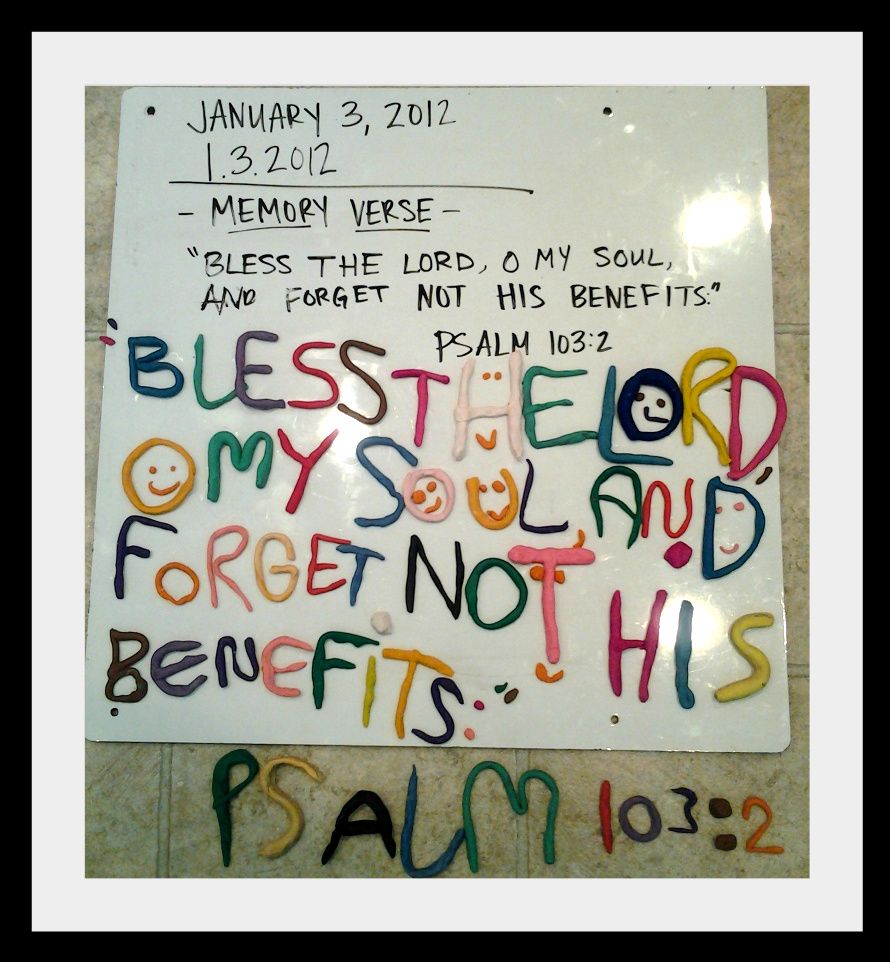 JANUARY 3, 2012
1.3.2012
- MEMORY VERSE -
"BLESS THE LORD, O MY SOUL,
AND FORGET NOT HIS BENEFITS."
PSALM 103:2
"BLESS THE LORD
O MY SOUL AND
FORGET NOT HIS
BENEFITS."
PSALM 103:2